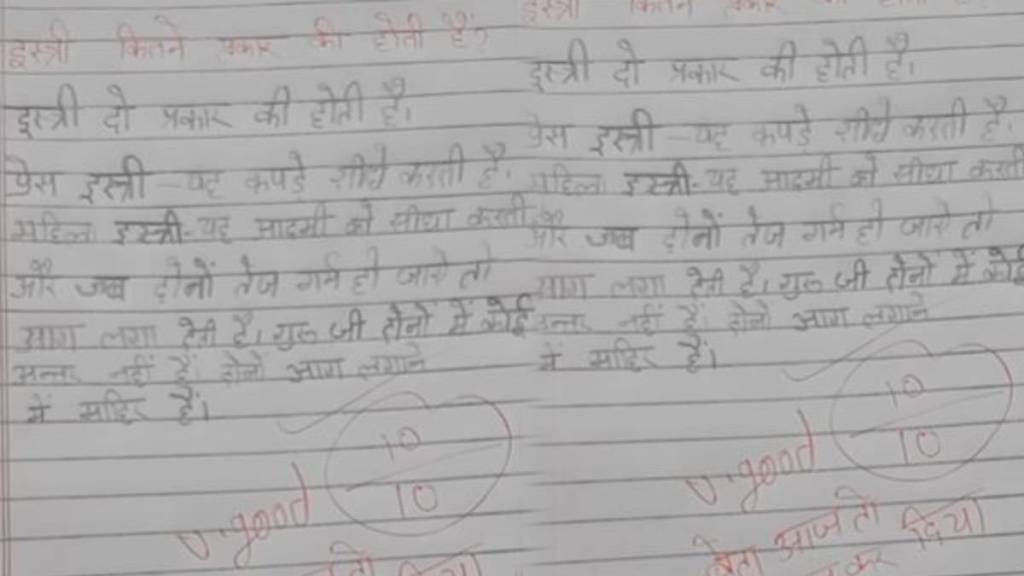 इस्त्री कितने प्रकार की होती है?
इस्त्री दो प्रकार की होती है।
प्रेस इस्त्री - यह कपड़े सीधे करती है।
महिला इस्त्री - यह आदमी को सीधा करती
और जब दोनों तेज गर्म हो जाये तो
आग लगा देती है। गुरु जी दोनों में कोई
अन्तर नहीं हैं। दोनो आग लगाने
में माहिर हैं।
10
10
v.good
इस्त्री कितने प्रकार
इस्त्री दो प्रकार की होती है।
प्रेस इस्त्री - यह कपड़े सीधे करती है।
महिला इस्त्री - यह आदमी को सीधा करती
और जब दोनों तेज गर्म हो जाये तो
आग लगा देती है। गुरु जी दोनों में कोई
अन्तर नहीं हैं। दोनो आग लगाने
में माहिर हैं।
10
10
v.good
बेटा आज तो
कर दिया